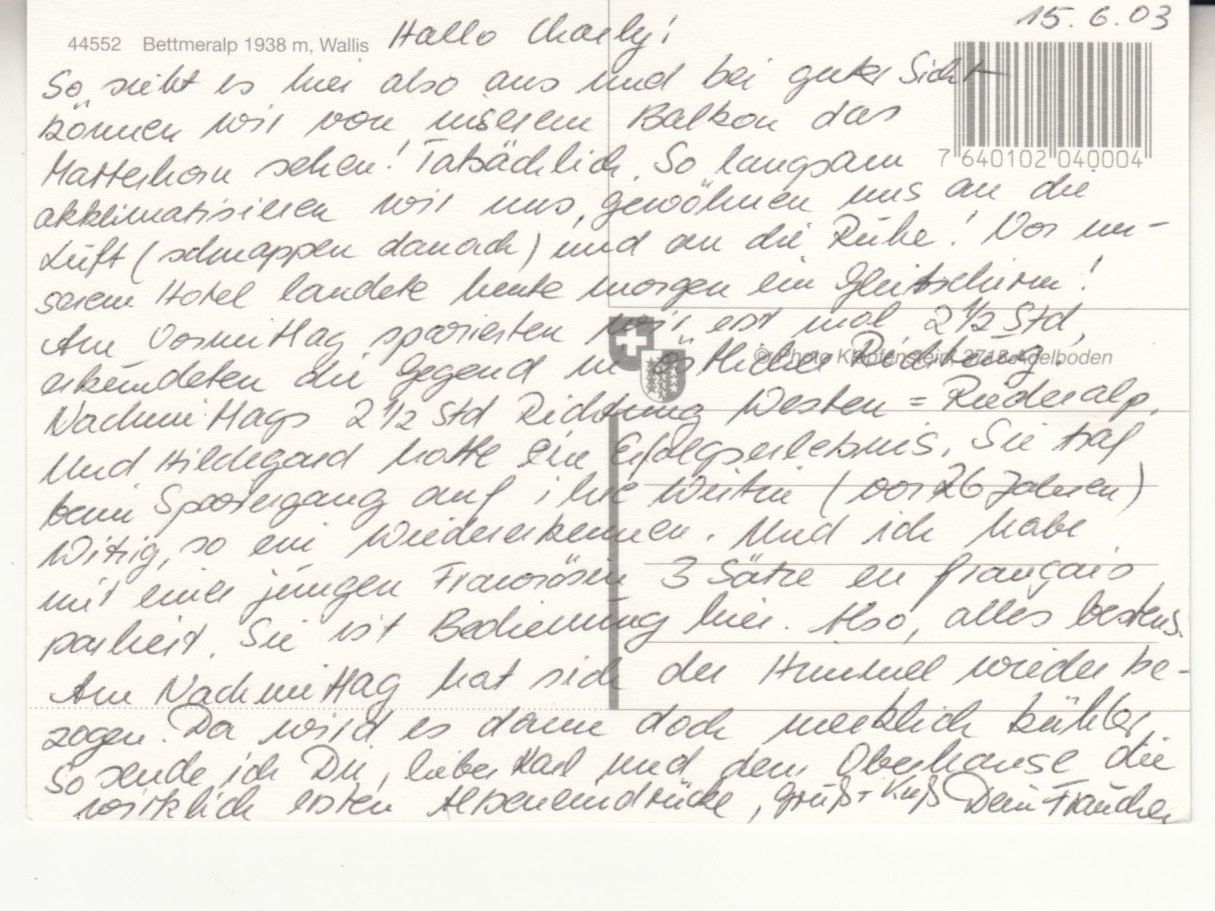 15.6.03
44552 Bettmeralp 1938 m, Wallis
Hallo Charly!
So sieht es hier also aus und bei guter Sicht
können wir von unserem Balkon das
7 640102 040004
Matterhorn sehen! Tatsächlich. So langsam
akklimatisieren wir uns, gewöhnen uns an die
Luft (schnappen danach) und an die Ruhe! Vor un-
serem Hotel landete heute morgen ein Gleitschirm!
Am Vormittag spazierten wir erst mal 2 1/2 Std,
© Photo Klopfenstein, 3715 Adelboden
erkundeten die Gegend in östlicher Richtung.
Nachmittags 2 1/2 Std Richtung Westen = Riederalp.
Und Hildegard hatte ein Erfolgserlebnis. Sie traf
beim Spaziergang auf ihre Wirtin (vor 26 Jahren)
Witzig, so ein Wiedererkennen. Und ich habe
mit einer jungen Französin 3 Sätze en français
parliert. Sie ist Bedienung hier. Also, alles bestens.
Am Nachmittag hat sich der Himmel wieder be-
zogen. Da wird es dann doch merklich kühler.
So sende ich Dir, lieber Karl und dem Oberhause die
wirklich ersten Alpeneindrücke, Gruß + Kuß Dein Frauchen